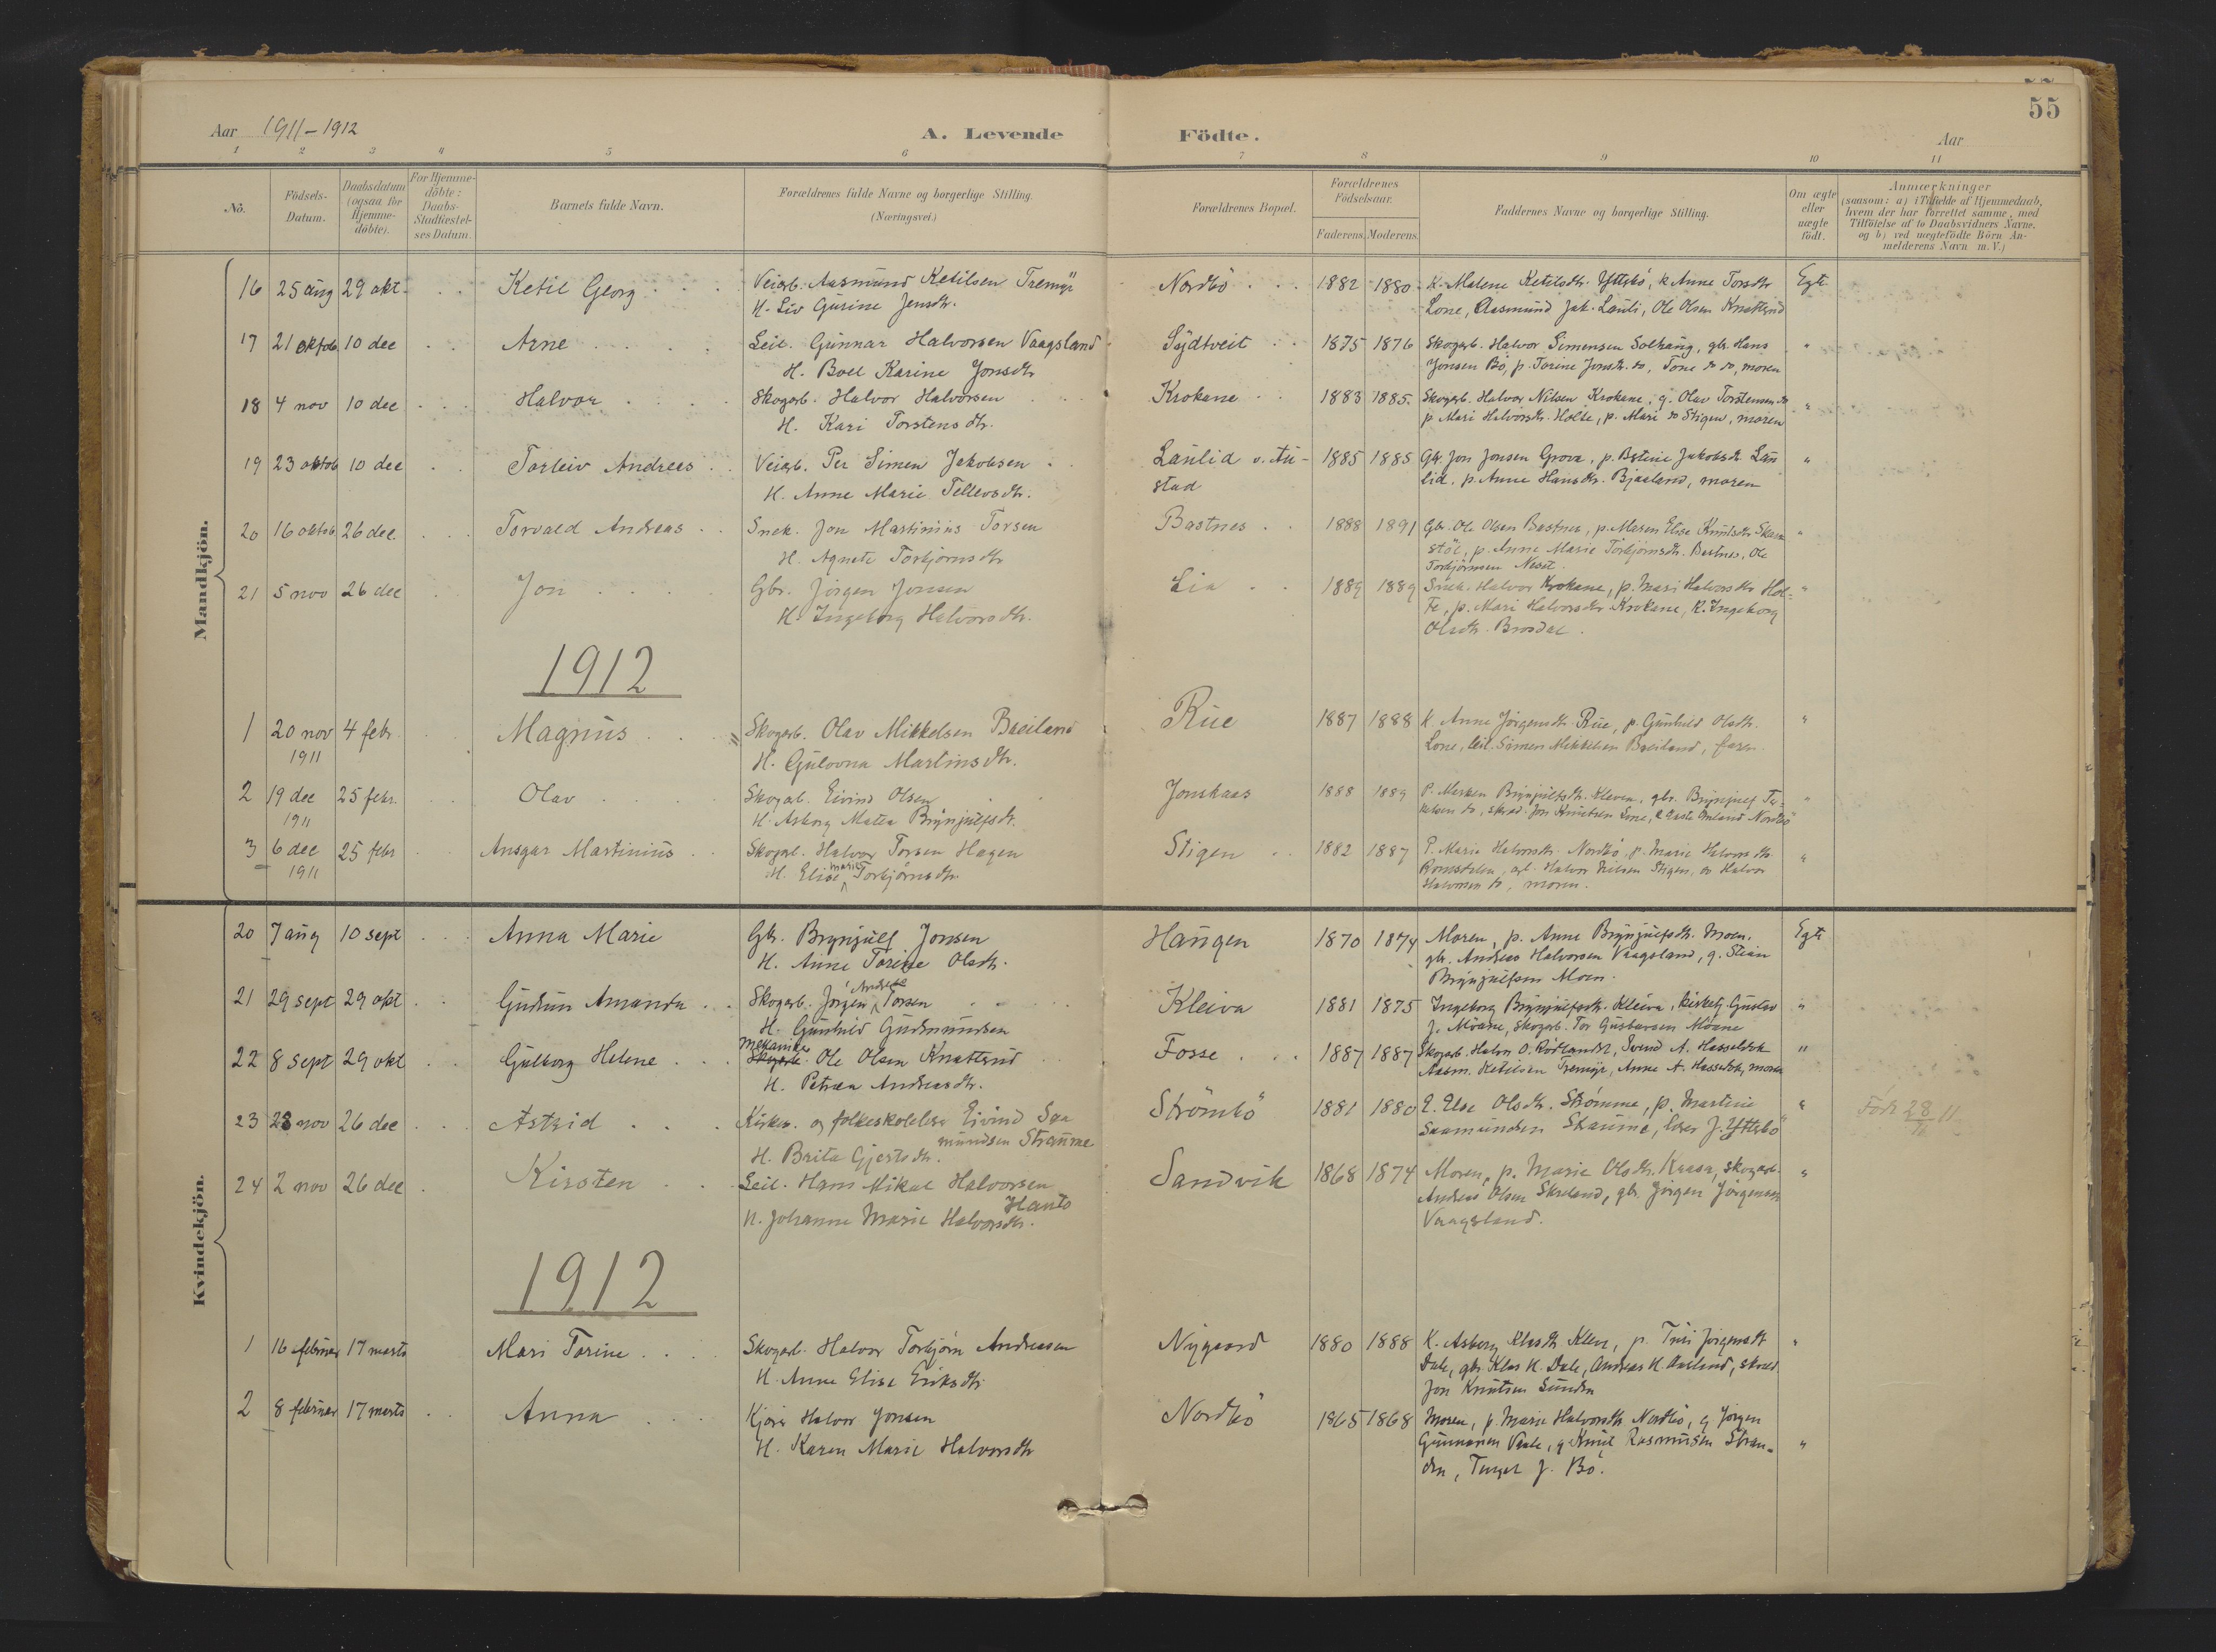 55
Aar 1911-1912
A. Levende Födte.
Aar
1 2 3 4 5 6 7 8 9 10 11
No. Födsels-Datum. Daabsdatum (ogsaa for Hjemme-döbte). For Hjemme-döbte: Daabs-Stadfæstel-ses Datum. Barnets fulde Navn. Forældrenes fulde Navne og borgerlige Stilling. (Næringsvei.) Forældrenes Bopæl. Forældrenes Födselsaar. Faderens. Moderens. Faddernes Navne og borgerlige Stilling. Om ægte eller uægte födt. Anmærkninger (saasom: a) i Tilfælde af Hjemmedaab, hvem der har forrettet samme, med Tilföielse af to Daabsvidners Navne, og b) ved uægtefödte Börn An-melderens Navn m. V.)
Mandkjön.
16 25 aug 29 okt. Ketil Georg Veiarb. Aasmund Ketilsen Tremyr Nordbö 1882 1880 K. Malene Ketilsdtr. Yttebö, k Anne Torsdtr Egte
H. Liv Gurine Jensdtr. Lone, Aasmund Jak. Lauli, Ole Olsen Knatterud
17 21 oktob. 10 dec Arne Leil. Gunnar Halvorsen Vaagsland Sydtveit 1875 1876 Skogarb. Halvor Simensen Solhaug, gbr. Hans "
H. Boel Karine Jonsdtr Jonsen Bö, p. Torine Jonsdtr. do, Tone do do, moren
18 4 nov 10 dec Halvor Skogarb. Halvor Halvorsen Krokane 1883 1885. Skogarb. Halvor Nilsen Krokane, g. Olav Torstensen do "
H. Kari Torstensdtr. p Mari Halvorsdtr. Holte, p. Mari do Stigen, moren
19 23 oktob 10 dec Torleiv Andreas Veiarb. Per Simen Jakobsen Laulid v. Au- 1885 1885 Gbr. Jon Jonsen Grova, p. Jakobsdtr. Lau "
H. Anne Marie Tellevsdtr. stad lid, p. Anne Hansdtr. Bjaaland, moren
20 16 oktob. 26 dec. Torvald Andreas Snek. Jon Martinius Torsen Bastnes 1888 1891 Gbr. Ole Olsen Bastnes, p. Maren Elise Knutsdtr "
H. Agnete Torbjørnsdtr stöl, p. Anne Marie Torbjørnsdtr. Bastnes, Ole
Torbjörnsen Neset.
21 5 nov 26 dec Jon Gbr. Jörgen Jonsen Lia 1889 1889 Snek. Halvor Krokane, p. Mari Halvorsdtr Hol- "
H. Ingeborg Halvorsdtr. te, p. Mari Halvorsdtr Krokane, K. Ingeborg
Olsdtr. Brosdal.
1912
1 20 nov 4 febr. Magnus Skogarb. Olav Mikkelsen Breiland Rue 1887 1888 K. Anne Jörgensdtr. Rue, p. Gunhild Olsdtr. "
1911 H. Gulovna Martinsdtr. Lone, leil. Simen Mikkelsen Breiland, faren.
2 19 dec 25 febr. Olav Skogarb. Eivind Olsen Jonskaas 1888 1889 P. Brynjulfsdtr. Kleven, gbr. Brynjulf Ter- "
1911 H. Asborg Matea Brynjulfsdtr. kelsen do, skræd. Jon Knutsen Lone, Nordbö
3 6 dec 25 febr Ansgar Martinius Skogarb. Halvor Torsen Hagen Stigen 1882 1887 P. Marie Halvorsdtr. Nordbö, p. Marie Halvorsdtr. "
1911 H. Elise Marie Torbjørnsdtr. Halvor Nilsen Stigen, do Halvor
Halvorsen do, moren.
Kvindekjön.
20 7 aug 10 sept Anna Marie Gbr. Brynjulf Jonsen Haugen 1870 1874 Moren, p. Anne Brynjulfsdtr. Moen. Egte
H. Anne Torine Olsdtr. gbr. Andreas Halvorsen Vaagsland, g. Stian
Brynjulfsen Moen.
21 29 sept 29 okt. Gudrun Amanda Skogarb. Jörgen Andreas Torsen Kleiva 1881 1875 Ingeborg Brynjulfsdtr. Kleiva, Gustav "
H. Gunhild Gudmundsen J. Möane, skogarb. Tor Gustavsen Möane
22 8 sept 29 okt Gulborg Helene Mekaniker Skogarb. Ole Olsen Knatterud Fosse 1887 1887 Skogarb. Halvor O. Rödlandst, Svend A. Hasseldok "
H. Petrea Andreasdtr. Aasm. Ketilsen Tremyr, Anne A. Hasseldok, moren
23 28 nov 26 dec Astrid Kirkes. og folkeskolelærer Eivind Saa Strömbö 1881 1880 E. Else Olsdtr. Strömme, p. Martine " Født 28/11
mundsen Straume Saamundsen Straume, lærer J. Yttebö
H. Brita Gjertsdtr.
24 2 nov 26 dec Kirsten Leil. Hans Mikal Halvorsen Sandvik 1868 1874 Moren, p. Marie Olsdtr. Kaasa, skogarb. "
Hanto Andreas Olsen Skreland, gbr. Jörgen Jörgensen
H. Johanne Marie Halvorsdtr. Vaagsland.
1912
1 16 februar 17 marts Mari Torine Skogarb. Halvor Torbjörn Andreasen Nygaard 1880 1888 K. Asborg Klasdtr. Klev, p. Turi Jörgensdtr "
H. Anne Elise Eriksdtr. Dale, gbr. Klas K. Dale, Andreas K. Aasland, skræd.
Jon Knutsen Sunden
2 8 februar 17 marts Anna Kjører Halvor Jonsen Nordbö 1865 1868 Moren, p. Marie Halvorsdtr. Nordbö, g Jörgen
H. Karen Marie Halvorsdtr Gunnarsen Vaale, g. Knut Rasmussen Stran- "
den, Terjer J. Bö.